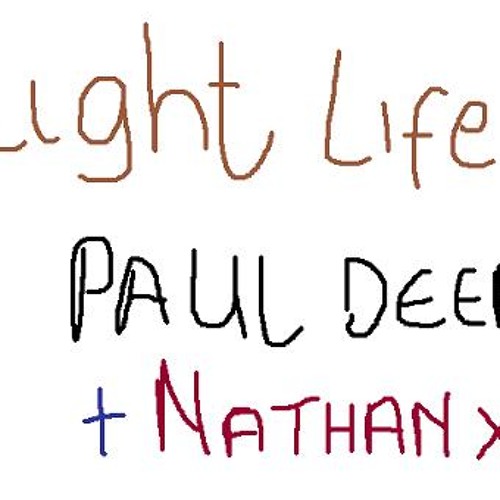 Light Life
PAUL DEE
+ NATHAN X